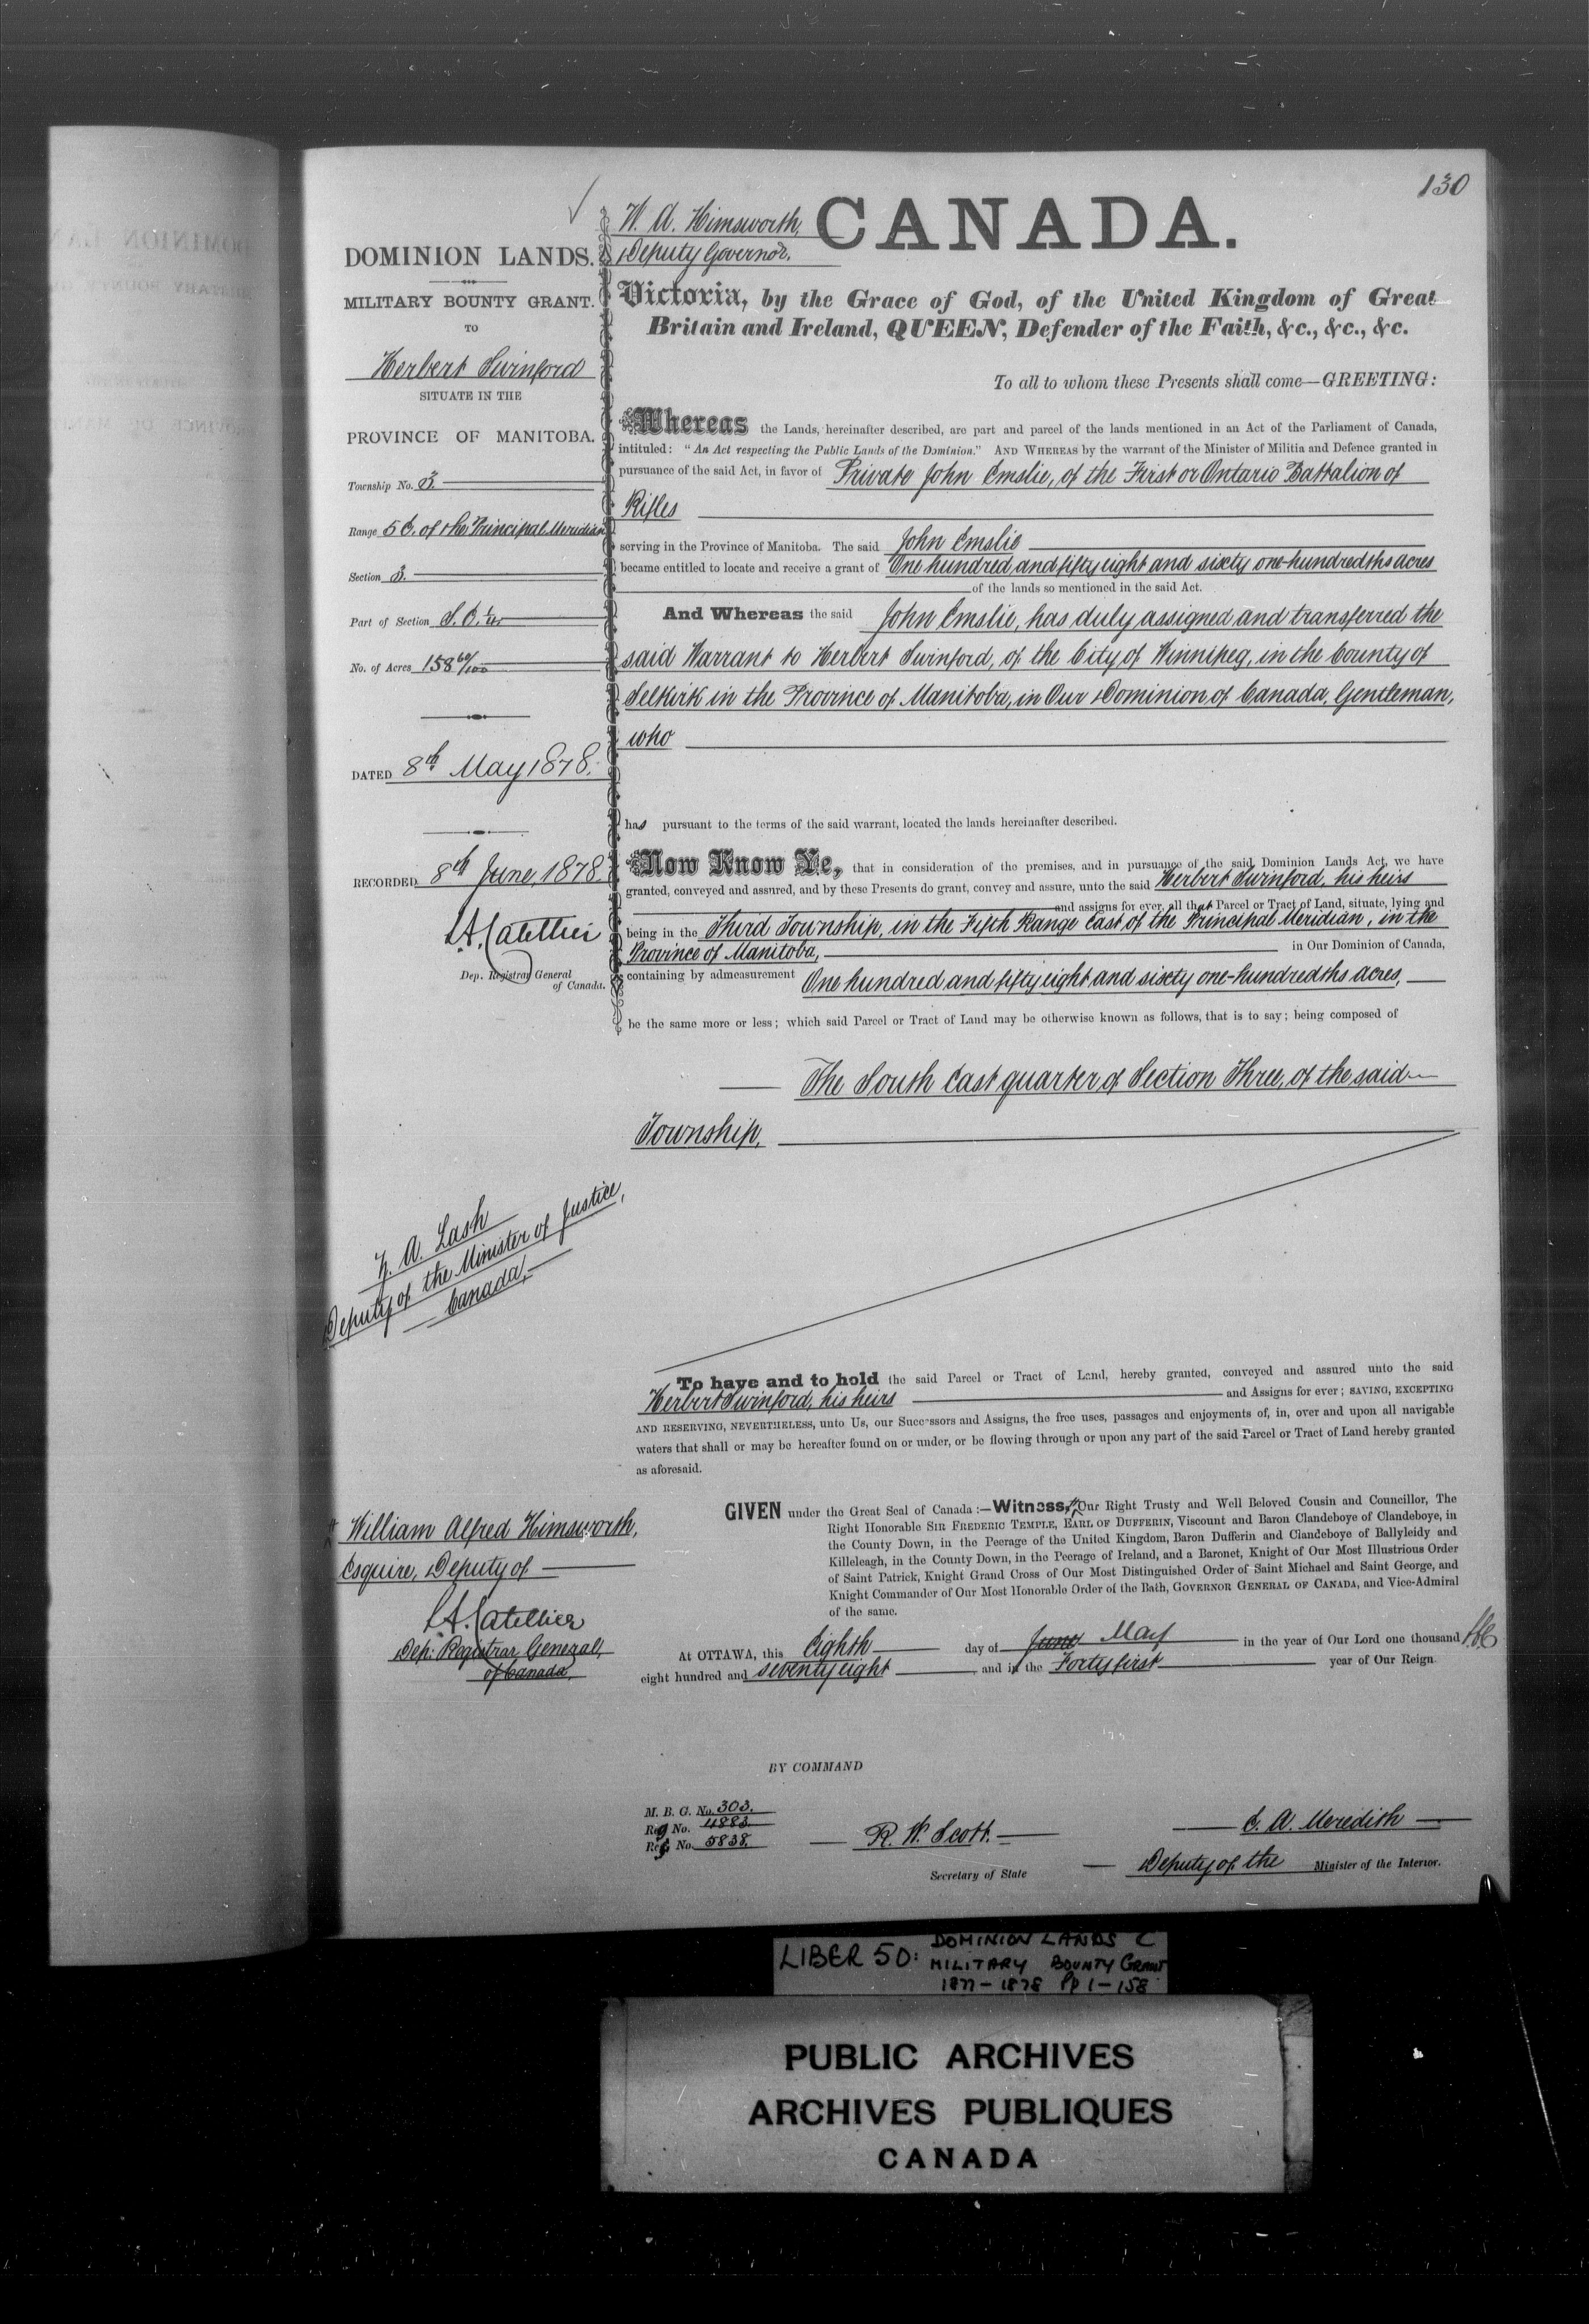 130
W. A. Himsworth,
Deputy Governor.
CANADA.
DOMINION LANDS.
MILITARY BOUNTY GRANT.
TO
Herbert Swinford
SITUATE IN THE
PROVINCE OF MANITOBA.
Township No. 3.
Range 5 E. of the Principal Meridian
Section 3.
Part of Section S. E. ¼.
No. of Acres 158 60/100
DATED 8th May 1878.
RECORDED 8th June, 1878.
L. A. Catellier
Dep. Registrar General
of Canada.
Z. A. Lash
Deputy of the Minister of Justice,
Canada,
William Alfred Himsworth,
Esquire, Deputy of
L. A. Catellier
Dep: Registrar General,
of Canada,
Victoria, by the Grace of God, of the United Kingdom of Great
Britain and Ireland, QUEEN, Defender of the Faith, &c., &c., &c.
To all to whom these Presents shall come—GREETING:
Whereas the Lands, hereinafter described, are part and parcel of the lands mentioned in an Act of the Parliament of Canada,
intituled: "An Act respecting the Public Lands of the Dominion." AND WHEREAS by the warrant of the Minister of Militia and Defence granted in
pursuance of the said Act, in favor of Private John Emslie, of the First or Ontario Battalion of
Rifles
serving in the Province of Manitoba. The said John Emslie
became entitled to locate and receive a grant of One hundred and fifty eight and sixty one-hundredths acres
of the lands so mentioned in the said Act.
And Whereas the said John Emslie, has duly assigned and transferred the
said Warrant to Herbert Swinford, of the City of Winnipeg, in the County of
Selkirk in the Province of Manitoba, in Our Dominion of Canada, Gentleman,
who
has pursuant to the terms of the said warrant, located the lands hereinafter described.
Now Know Ye, that in consideration of the premises, and in pursuance of the said Dominion Lands Act, we have
granted, conveyed and assured, and by these Presents do grant, convey and assure, unto the said Herbert Swinford, his heirs
and assigns for ever, all that Parcel or Tract of Land, situate, lying and
being in the Third Township, in the Fifth Range East of the Principal Meridian, in the
Province of Manitoba, in Our Dominion of Canada,
containing by admeasurement One hundred and fifty eight and sixty one-hundredths acres,
be the same more or less; which said Parcel or Tract of Land may be otherwise known as follows, that is to say; being composed of
The South East quarter of Section Three, of the said
Township,
To have and to hold the said Parcel or Tract of Land, hereby granted, conveyed and assured unto the said
Herbert Swinford, his heirs and Assigns for ever; SAVING, EXCEPTING
AND RESERVING, NEVERTHELESS, unto Us, our Successors and Assigns, the free uses, passages and enjoyments of, in, over and upon all navigable
waters that shall or may be hereafter found on or under, or be flowing through or upon any part of the said Parcel or Tract of Land hereby granted
as aforesaid.
GIVEN under the Great Seal of Canada:—Witness, Our Right Trusty and Well Beloved Cousin and Councillor, The
Right Honorable SIR FREDERIC TEMPLE, EARL OF DUFFERIN, Viscount and Baron Clandeboye of Clandeboye, in
the County Down, in the Peerage of the United Kingdom, Baron Dufferin and Clandeboye of Ballyleidy and
Killeleagh, in the County Down, in the Peerage of Ireland, and a Baronet, Knight of Our Most Illustrious Order
of Saint Patrick, Knight Grand Cross of Our Most Distinguished Order of Saint Michael and Saint George, and
Knight Commander of Our Most Honorable Order of the Bath, GOVERNOR GENERAL OF CANADA, and Vice-Admiral
of the same.
At OTTAWA, this Eighth day of June May in the year of Our Lord one thousand
eight hundred and seventy eight and in the Forty first year of Our Reign
BY COMMAND
M. B. G. No. 303.
Reg No. 4883.
Reg No. 5838.
R. W. Scott.
Secretary of State
E. A. Meredith
Deputy of the Minister of the Interior.
LIBER 50: DOMINION LANDS C
MILITARY BOUNTY GRANT
1877-1878 Pp 1-158
PUBLIC ARCHIVES
ARCHIVES PUBLIQUES
CANADA